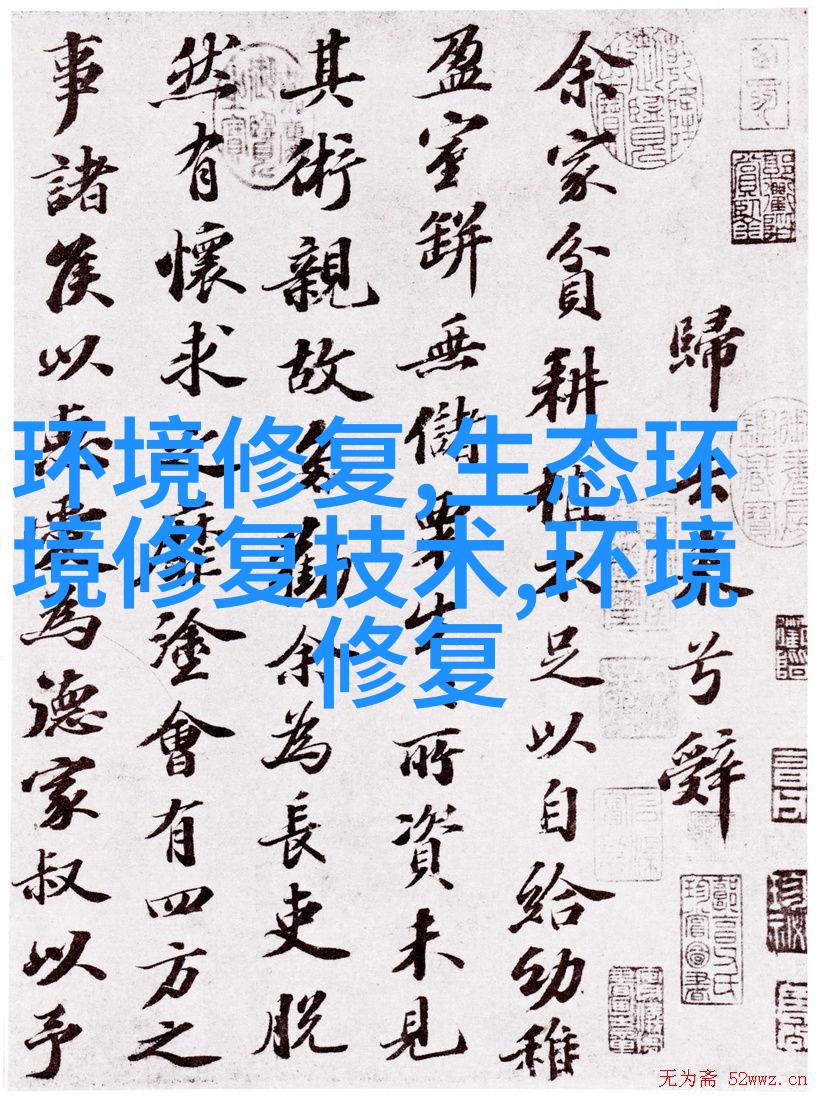 歸去來兮辭
余家貧耕植不足以自給幼稚
盈室缾無儲粟生生所資未見
其術親故多勸余為長吏脫
然有懷求之靡塗會有四方之
事諸侯以惠愛為德家叔以予
环境修复,生态环
境修复技术,环境
修复
无为斋 52wwz.cn